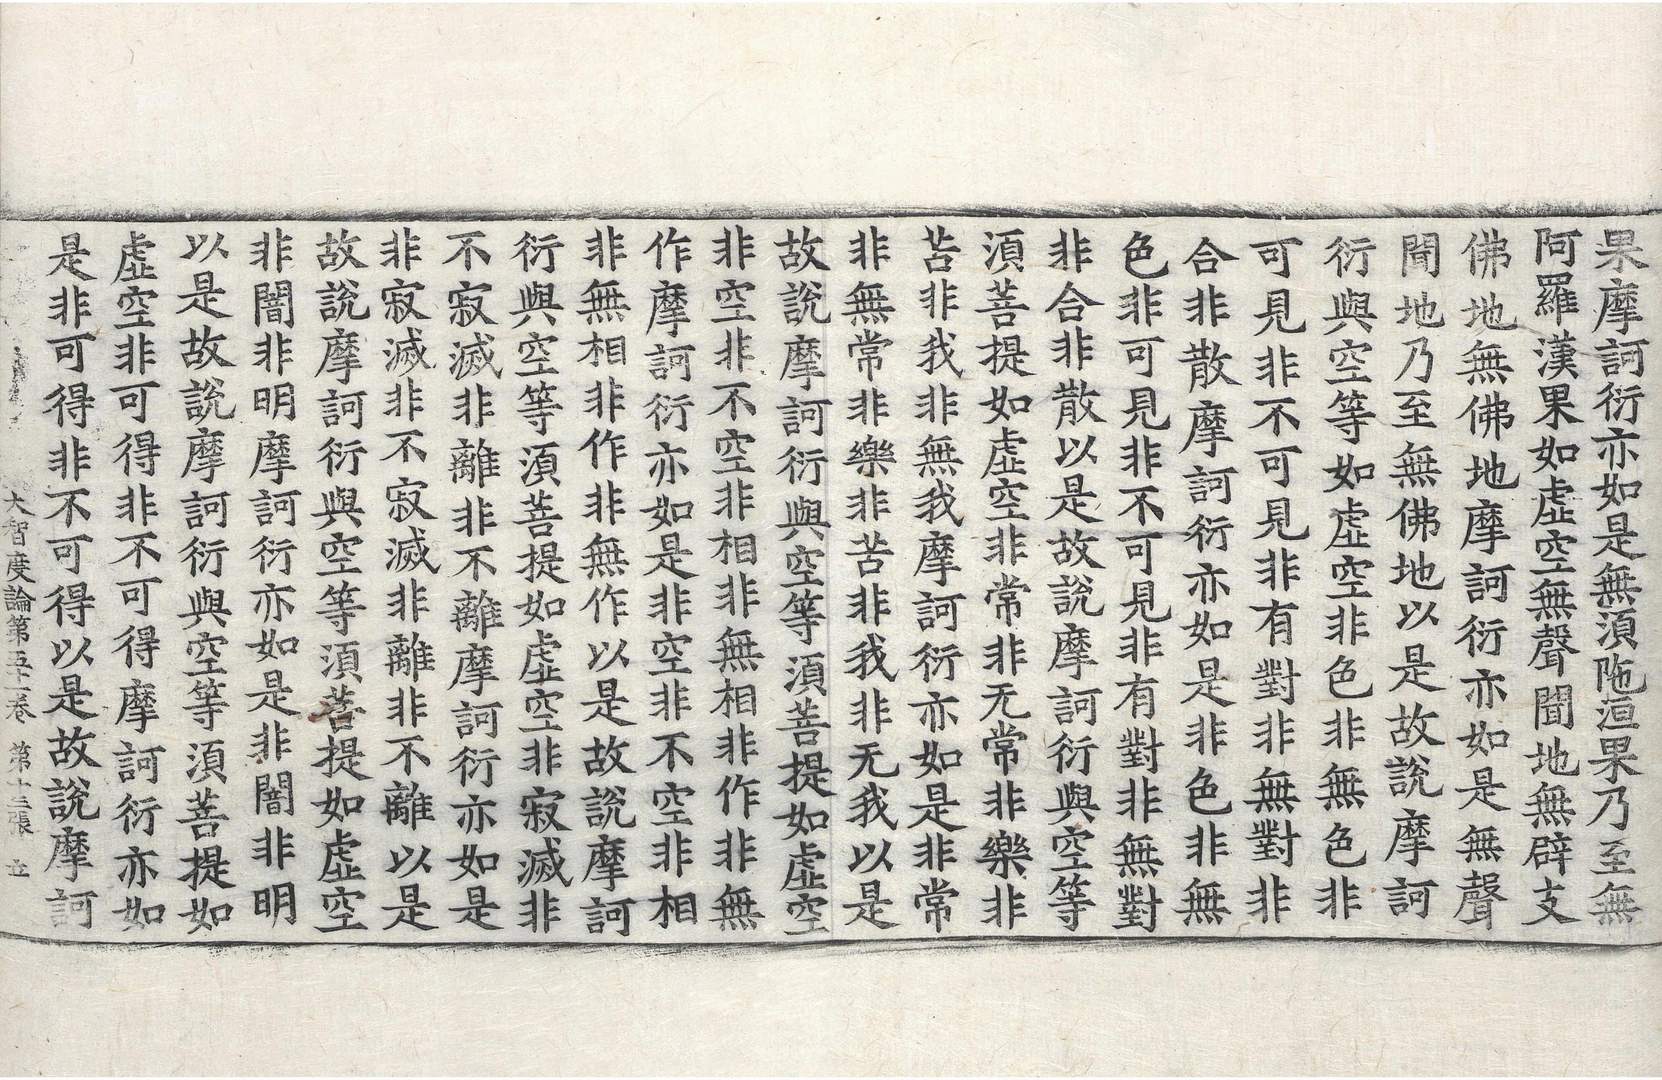 果摩訶衍亦如是無湏陁洹果乃至無
阿羅漢果如虛空無聲聞地無辟支
佛地無佛地摩訶衍亦如是無聲
聞地乃至無佛地以是故說摩訶
衍與空等如虛空非色非無色非
可見非不可見非有對非無對非
合非散摩訶衍亦如是非色非無
色非可見非不可見非有對非無對
非合非散以是故說摩訶衍與空等
湏菩提如虛空非常非无常非樂非
苦非我非無我摩訶衍亦如是非常
非無常非樂非苦非我非无我以是
故說摩訶衍與空等湏菩提如虛空
非空非不空非相非無相非作非無
作摩訶衍亦如是非空非不空非相
非無相非作非無作以是故說摩訶
衍與空等湏菩提如虛空非寂滅非
不寂滅非離非不離摩訶衍亦如是
非寂滅非不寂滅非離非不離以是
故說摩訶衍與空等湏菩提如虛空
非闇非明摩訶衍亦如是非闇非明
以是故說摩訶衍與空等湏菩提如
虛空非可得非不可得摩訶衍亦如
是非可得非不可得以是故說摩訶
大智度論第五十一卷 第十三張